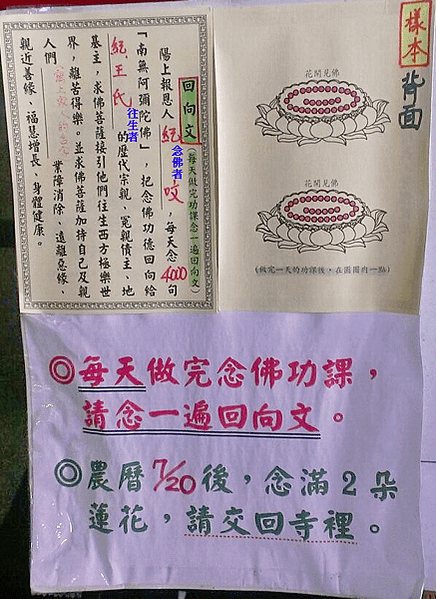 樣本
背面
花開見佛
花開見佛
(做完一天的功課後，在圓圈內一點)
回向文(每天做完功課念一遍回向文)
陽上報恩人 紀 念佛者 咬，每天念4000句
「南無阿彌陀佛」，把念佛功德回向給
紀王氏 往生者 的歷代宗親、冤親債主、地
基主，求佛菩薩接引他們往生西方極樂世
界，離苦得樂。並求佛菩薩加持自己及親
人們 業障消除、遠離惡緣、
親近善緣、福慧增長、身體健康。
◎每天做完念佛功課，
請念一遍回向文。
◎農曆7/20後，念滿2朵
蓮花，請交回寺裡。